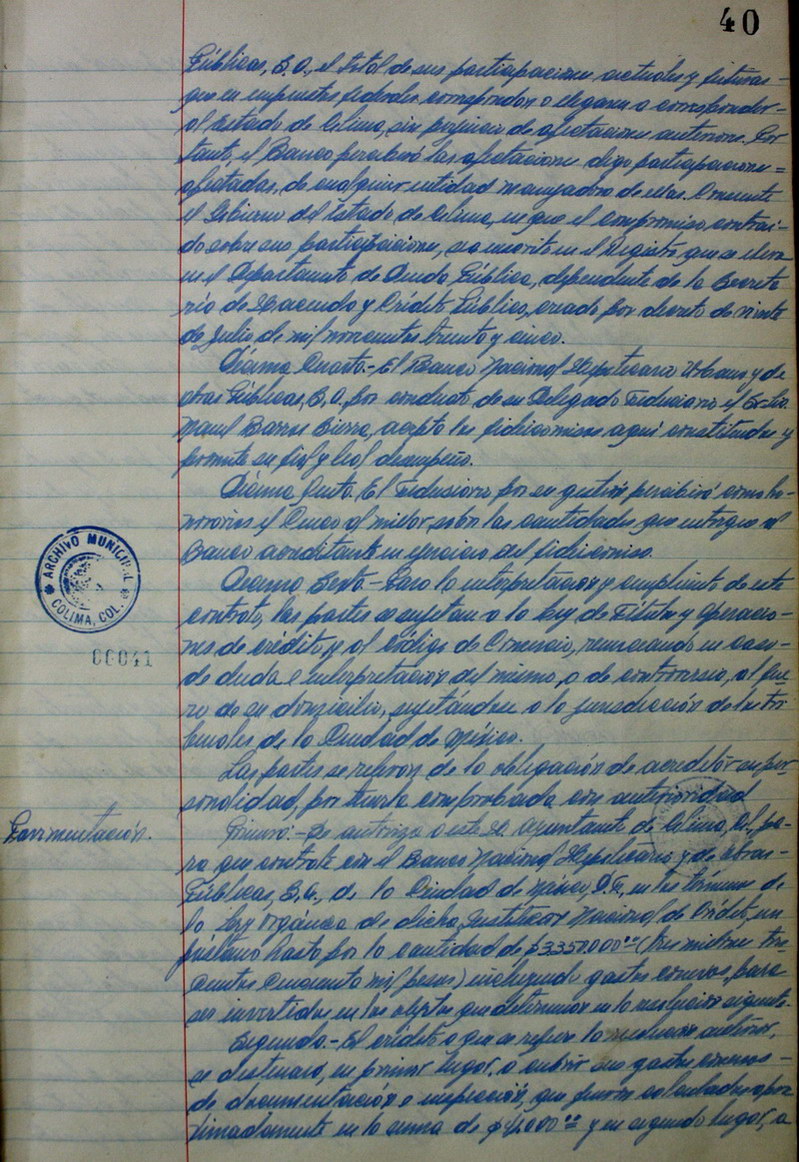 40
Públicas, S.A., el total de sus participaciones actuales y futuras
que en impuestos federales correspondan o llegaren a corresponder
al Estado de Colima, sin perjuicio de afectaciones anteriores. Por
tanto, el Banco percibirá las afectaciones digo participaciones
afectadas, de cualquier entidad manejadora de ellas. Consiente
el Gobierno del Estado de Colima, en que el compromiso contraí-
do sobre sus participaciones, sea inscrito en el Registro que se lleva
en el Departamento de Deuda Pública, dependiente de la Secreta
ría de Hacienda y Crédito Público, creado por decreto de veinte
de Julio de mil novecientos treinta y cinco.
Décima Cuarta.- El Banco Nacional Hipotecario Urbano y de
obras Públicas, S.A. por conducto de su Delegado Fiduciario el
Manuel Barros Sierra, acepta los fideicomisos aquí constituidos y
promete su fiel y leal desempeño.
Décima Quinta. El Fiduciario por su gestión percibirá como ho-
norarios el Cinco al millar, sobre las cantidades que entregue al
Banco acreditante en ejercicio del fideicomiso.
Décima Sexta.- Para la interpretación y cumplimiento de este
contrato, las partes se sujetan a la Ley de Títulos y Operacio-
nes de crédito y al Código de Comercio, renunciando en caso
de duda e interpretación del mismo, o de controversia, al fue-
ro de su domicilio, sujetándose a la jurisdicción de los tri
bunales de la Ciudad de México.
Las partes se relevan de la obligación de acreditar su per
sonalidad, por tenerla comprobada con anterioridad
Pavimentación.
Primero.- Se autoriza a este H. Ayuntamiento de Colima, Col., pa-
ra que contrate con el Banco Nacional Hipotecario y de Obras
Públicas, S.A., de la Ciudad de México, D.F. en los términos de
la Ley Orgánica de dicha Institución Nacional de Crédito, un
préstamo hasta por la cantidad de $3.350.000.00 (tres millones tres
cientos cincuenta mil pesos) incluyendo gastos conexos, para
ser invertidos en los objetos que determinan en la resolución siguiente.
Segundo.- El crédito a que se refiere la resolución anterior,
se destinará, en primer lugar, a cubrir los gastos conexos
de documentación e inspección, que fueron calculados apro
ximadamente en la suma de y en segundo lugar, a
ARCHIVO MUNICIPAL
COLIMA, COL.
00041